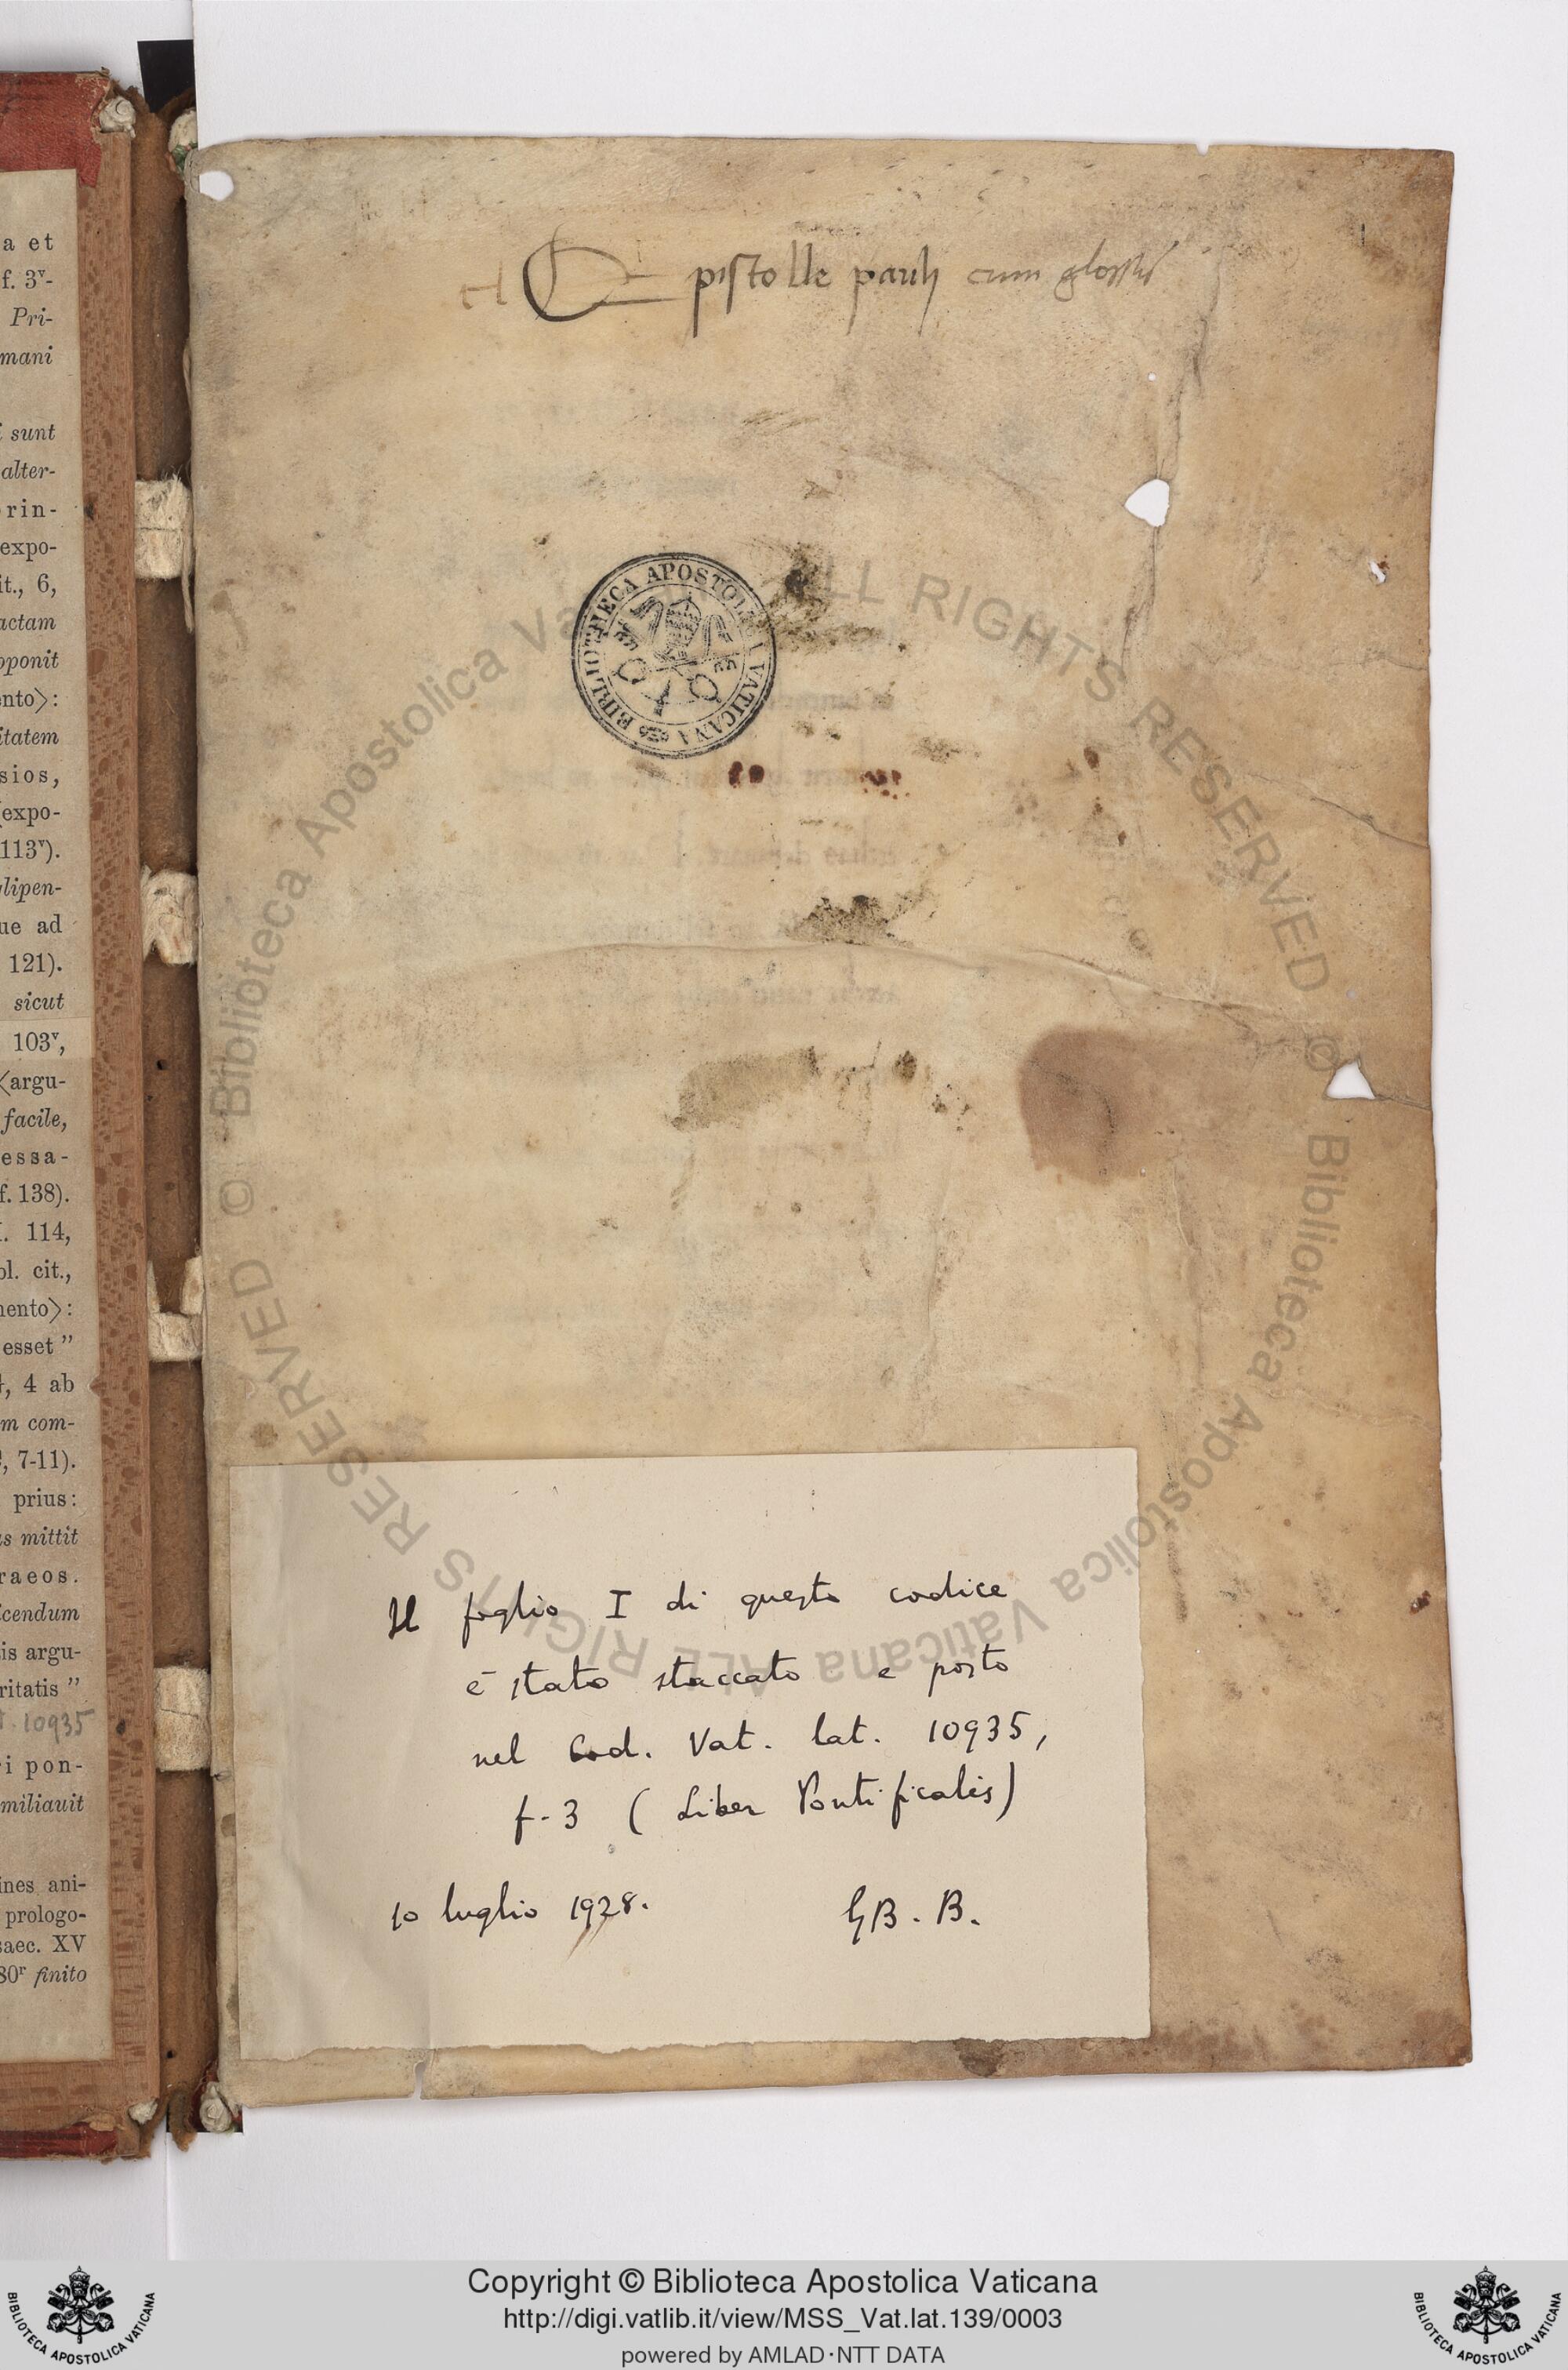 a et
f. 3v-
Pri-
mani
i sunt
alter-
rin-
expo-
it., 6,
actam
oponit
ento⟩:
itatem
sios,
expo-
113v).
lipen-
ue ad
121).
sicut
103v,
⟨argu-
facile,
essa-
f. 138).
114,
ol. cit.,
ento⟩:
esset ”
, 4 ab
m com-
, 7-11).
prius:
s mittit
raeos.
icendum
is argu-
ritatis ”
10935
ri pon-
miliauit
ines ani-
prologo-
saec. XV
80r finito
Epistolle pauli cum glossis
1
BIBLIOTHECA APOSTOLICA VATICANA
© Biblioteca Apostolica Vaticana ALL RIGHTS RESERVED © Biblioteca Apostolica Vaticana ALL RIGHTS RESERVED
Il foglio I di questo codice
è stato staccato e posto
nel Cod. Vat. lat. 10935,
f. 3 (Liber Pontificalis)
10 luglio 1928. GB. B.
Copyright © Biblioteca Apostolica Vaticana
http://digi.vatlib.it/view/MSS_Vat.lat.139/0003
powered by AMLAD·NTT DATA
BIBLIOTECA APOSTOLICA VATICANA
BIBLIOTECA APOSTOLICA VATICANA